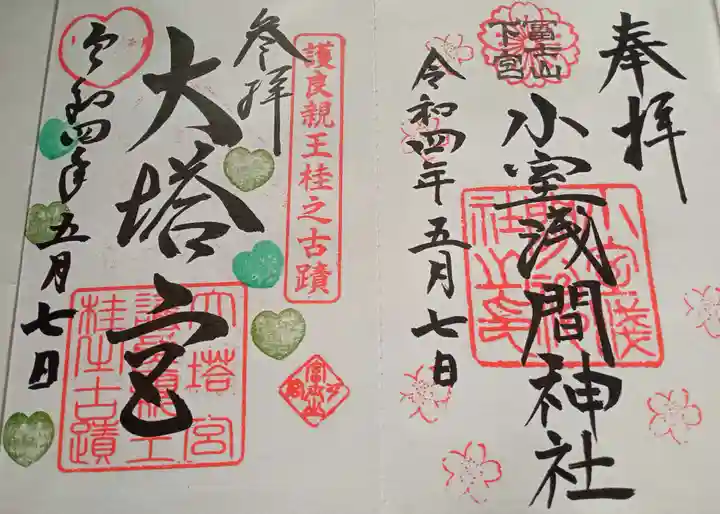 奉拝
富士山
下宮
小室浅間神社
令和四年五月七日
参拝
護良親王桂之古蹟
大塔宮
令和四年五月七日
大塔宮
護良親王
桂之古蹟